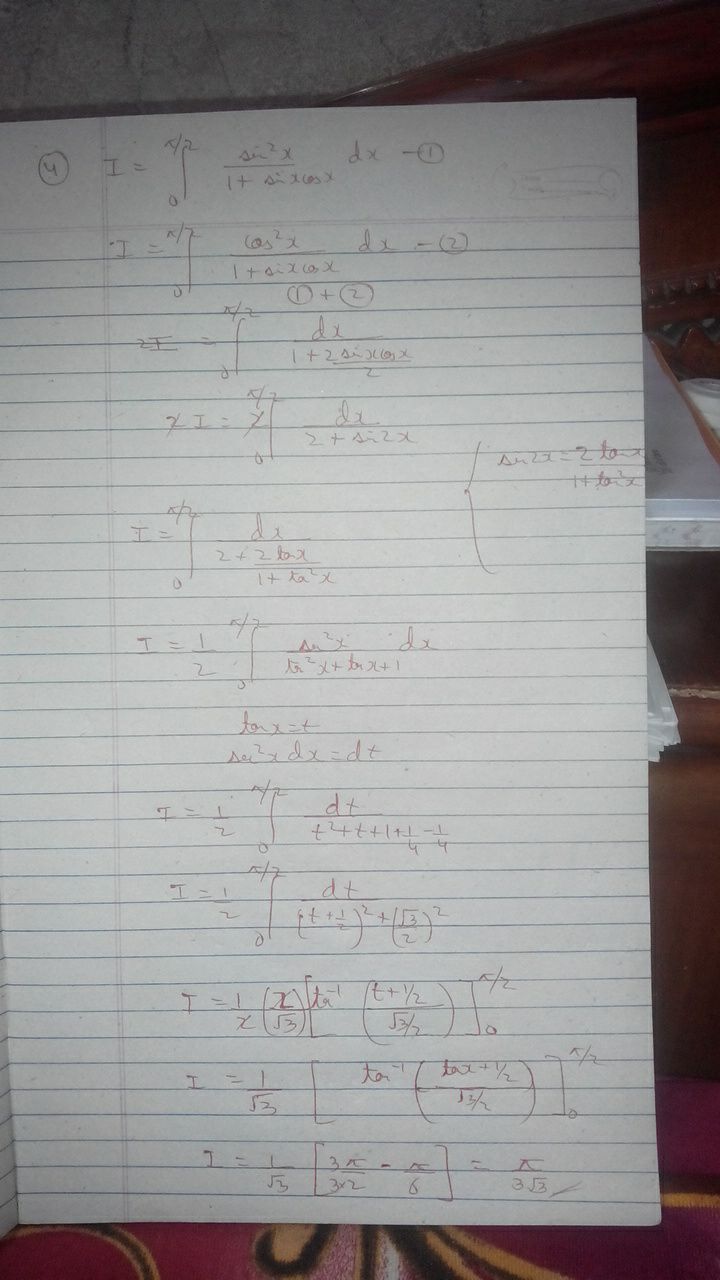 ④ I = ∫₀^{π/2} sin²x / (1 + sinxcosx) dx – ①
I = ∫₀^{π/2} cos²x / (1 + sinxcosx) dx – ②
① + ②
2I = ∫₀^{π/2} dx / (1 + 2sinxcosx/2)
2I = 2∫₀^{π/2} dx / (2 + sin2x)
{ sin2x = 2tanx / (1+tan²x)
I = ∫₀^{π/2} dx / (2 + 2tanx / (1 + tan²x))
I = 1/2 ∫₀^{π/2} sec²x dx / (tan²x + tanx + 1)
tanx = t
sec²x dx = dt
I = 1/2 ∫₀^{π/2} dt / (t² + t + 1 + 1/4 – 1/4)
I = 1/2 ∫₀^{π/2} dt / ((t + 1/2)² + (√3/2)²)
I = 1/2 (2/√3) [tan⁻¹ ((t + 1/2) / (√3/2))]₀^{π/2}
I = 1/√3 [tan⁻¹ ((tanx + 1/2) / (√3/2))]₀^{π/2}
I = 1/√3 [3π/(3×2) – π/6] = π/(3√3)